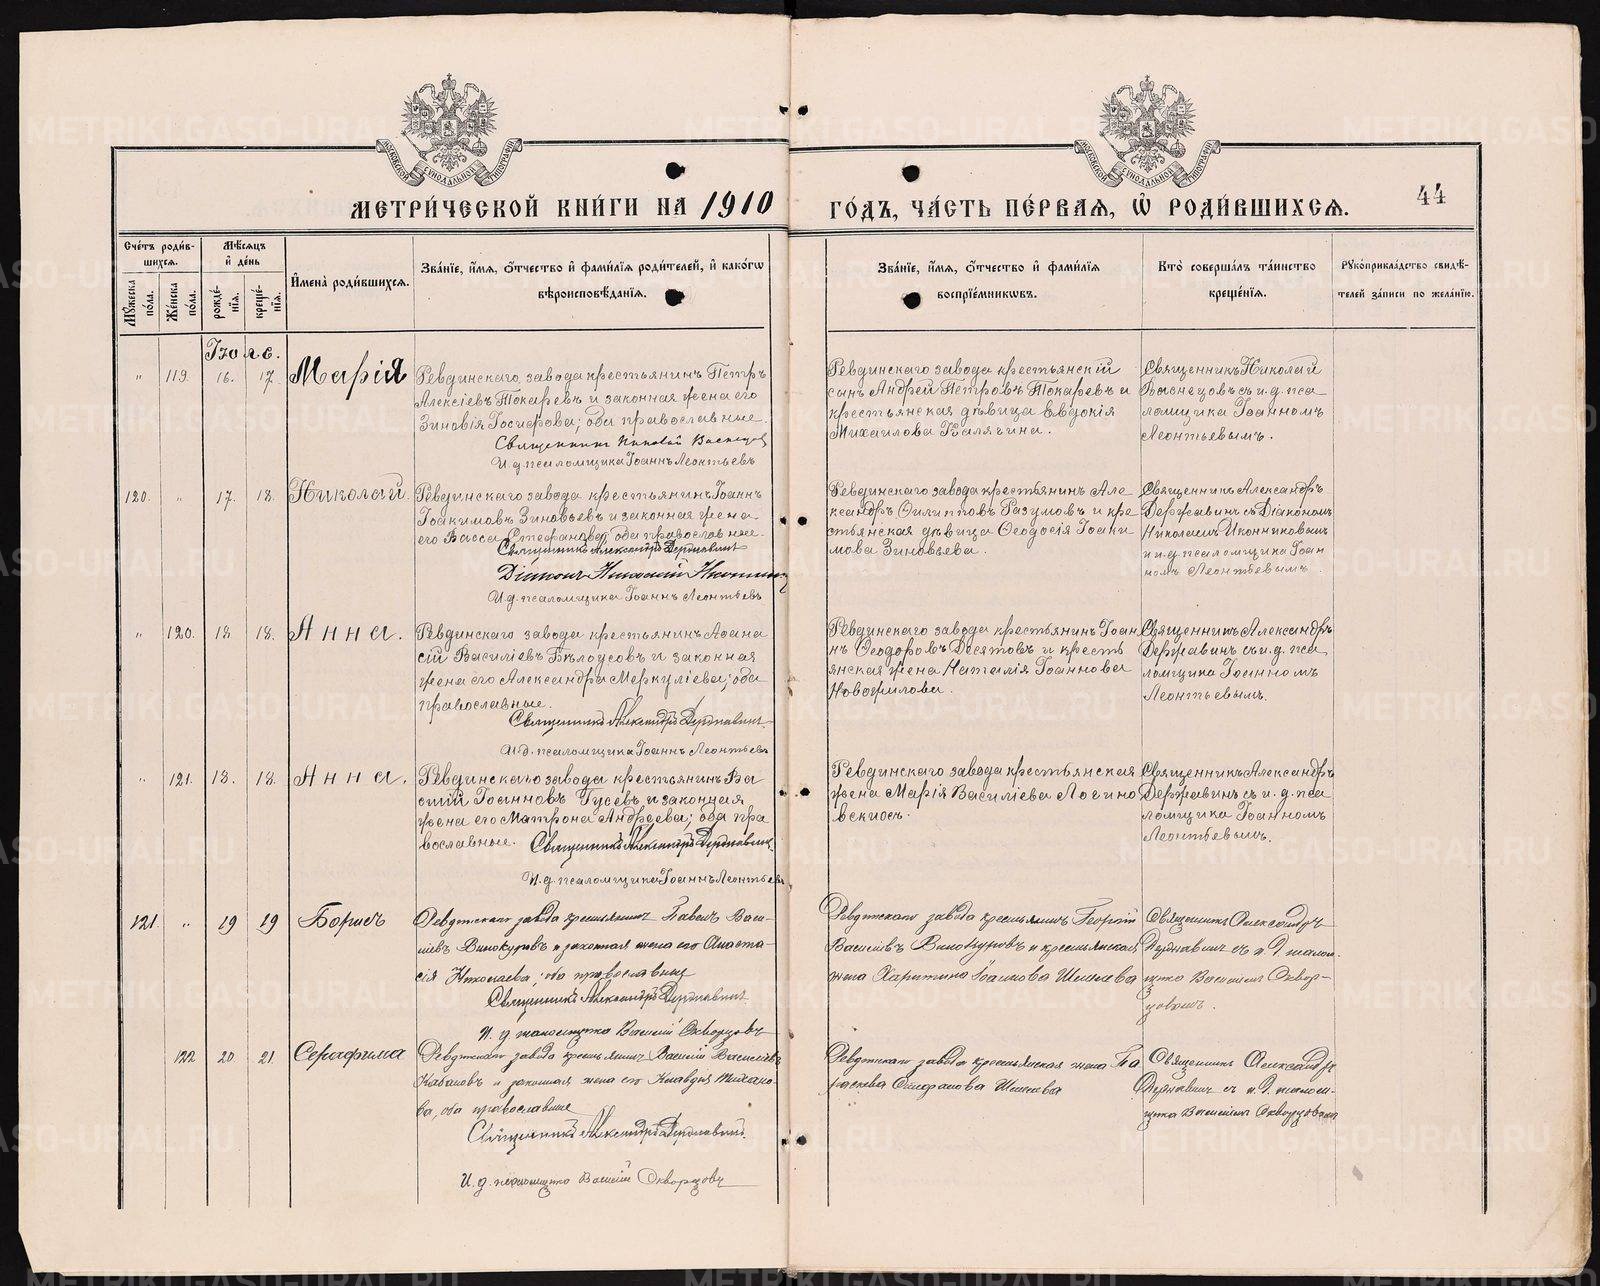 МЕТРИ́ЧЕСКОЙ КНИ́ГИ НА 1910
ГО́ДЪ, ЧА́СТЬ ПЕ́РВАЯ, Ѽ РОДИ́ВШИХСЯ.
44
Сче́тъ роди́в-
шихся.
Мѣ́сяцъ
и̂ де́нь
Мꙋ́жеска по́ла.
Же́нска по́ла.
рожде́-
нїя.
креще́-
нїя.
И̂мена̀ роди́вшихся.
Зва́нїе, и̂́мя, ѻ̂́тчество и̂ фами́лїя роди́телей, и̂ како́гѡ
вѣроисповѣ́данїя.
Зва́нїе, и̂́мя, ѻ̂́тчество и̂ фами́лїя
воспрїе́мникѡвъ.
Кто̀ соверша́лъ та́инство
креще́нїя.
Рꙋкоприкла́дство свидѣ́-
телей за́писи по жела́нїю.
Іюле.
" 119. 16. 17. Марія
Ревдинскаго завода крестьянинъ Петръ
Алексіевъ Токаревъ и законная жена его
Зиновія Іосифова; оба православные.
Священникъ Николай Васнецовъ
И.д. псаломщика Іоаннъ Леонтьевъ
Ревдинскаго завода крестьянскій
сынъ Андрей Петровъ Токаревъ и
крестьянская дѣвица Евдокія
Михаилова Калягина.
Священникъ Николай
Васнецовъ съ и.д. пса-
ломщика Іоанномъ
Леонтьевымъ.
120. " 17. 18. Николай.
Ревдинскаго завода крестьянинъ Іоаннъ
Іоакимовъ Зиновьевъ и законная жена
его Васса Стефанова; оба православные.
Священникъ Александръ Державинъ
Діаконъ Николай Иконниковъ
И.д. псаломщика Іоаннъ Леонтьевъ
Ревдинскаго завода крестьянинъ Але-
ксандръ Филипповъ Разумовъ и кре-
стьянская дѣвица Ѳеодосія Іоаки-
мова Зиновьева.
Священникъ Александръ
Державинъ съ Діакономъ
Николаемъ Иконниковымъ
и и.д. псаломщика Іоан-
номъ Леонтьевымъ.
" 120. 18 18. Анна.
Ревдинскаго завода крестьянинъ Аѳана
сій Василіевъ Бѣлоусовъ и законная
жена его Александра Меркуліева; оба
православные.
Священникъ Александръ Державинъ
И.д. псаломщика Іоаннъ Леонтьевъ
Ревдинскаго завода крестьянинъ Іоан
нъ Ѳеодоровъ Десятовъ и кресть
янская жена Наталія Іоаннова
Новожилова.
Священникъ Александръ
Державинъ съ и.д. пса-
ломщика Іоанномъ
Леонтьевымъ.
" 121. 18. 18. Анна.
Ревдинскаго завода крестьянинъ Ва
силій Іоанновъ Гусевъ и законная
жена его Матрона Андреева; оба пра
вославные.
Священникъ Александръ Державинъ
И.д. псаломщика Іоаннъ Леонтьевъ
Ревдинскаго завода крестьянская
жена Марія Василіева Логино
вскихъ.
Священникъ Александръ
Державинъ съ и.д. пса
ломщика Іоанномъ
Леонтьевымъ.
121. " 19 19 Борисъ
Ревдинскаго завода крестьянинъ Павелъ Васи-
ліевъ Винокуровъ и законная жена его Анаста-
сія Николаева; оба православные
Священникъ Александръ Державинъ
И.д. псаломщика Василій Скворцовъ
Ревдинскаго завода крестьянинъ Георгій
Василіевъ Винокуровъ и крестьянская
жена Харитина
Священникъ Александръ
Державинъ съ и.д. псалом-
щика Василіем Сквор-
цовымъ.
122 20. 21. Серафима
Ревдинскаго завода крестьянинъ Василій Василіевъ
Кабановъ и законная жена его Клавдія Михаило-
ва, оба православные
Священникъ Александръ Державинъ
И.д. псаломщика Василій Скворцовъ
Ревдинскаго завода крестьянская жена Па
раскева Стефанова
Священникъ Александръ
Державинъ съ и.д. псалом-
щика Василіем Скворцовымъ
METRIKI.GASO-URAL.RU